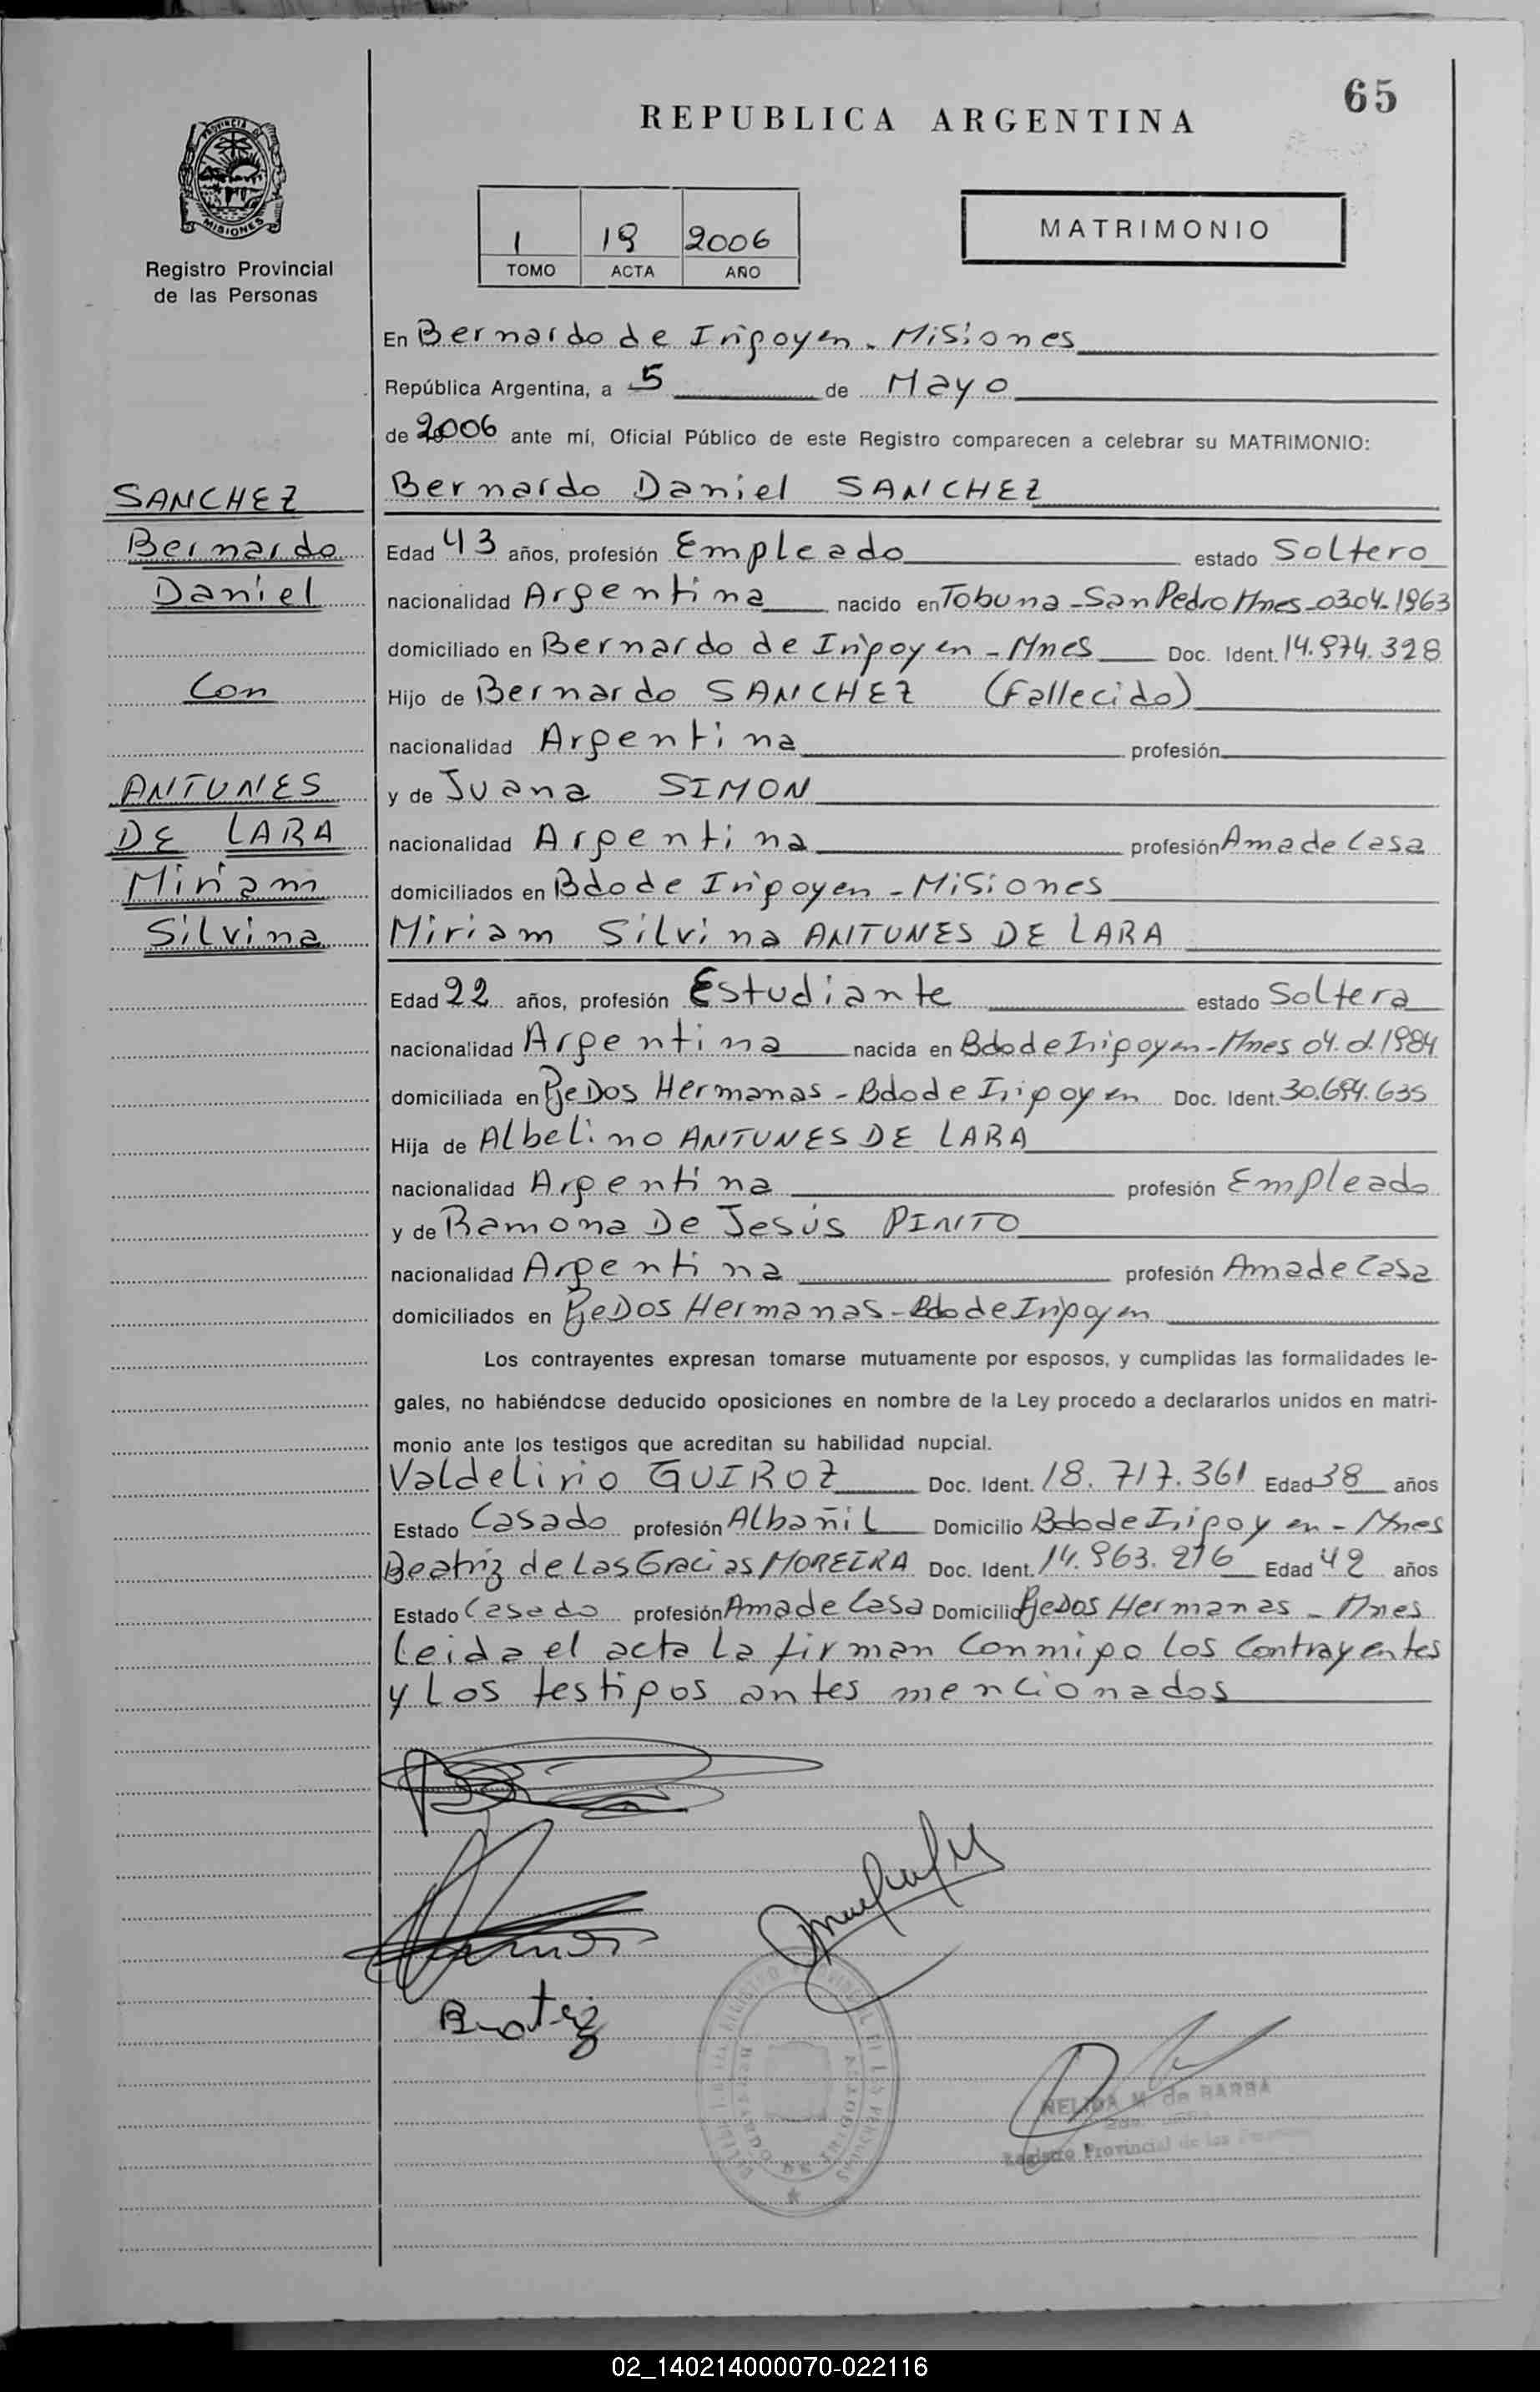 65
REPUBLICA ARGENTINA
PROVINCIA DE
MISIONES
Registro Provincial
de las Personas
1 19 2006
TOMO ACTA AÑO
MATRIMONIO
En Bernardo de Irigoyen - Misiones
República Argentina, a 5 de Mayo
de 2006 ante mí, Oficial Público de este Registro comparecen a celebrar su MATRIMONIO:
SANCHEZ
Bernardo
Daniel
Con
ANTUNES
DE LARA
Miriam
Silvina
Bernardo Daniel SANCHEZ
Edad 43 años, profesión Empleado estado Soltero
nacionalidad Argentina nacido en Tobuna - San Pedro Mnes - 03.04.1963
domiciliado en Bernardo de Irigoyen - Mnes Doc. Ident. 14.974.328
Hijo de Bernardo SANCHEZ (Fallecido)
nacionalidad Argentina profesión
y de Juana SIMON
nacionalidad Argentina profesión Ama de Casa
domiciliados en Bdo de Irigoyen - Misiones
Miriam Silvina ANTUNES DE LARA
Edad 22 años, profesión Estudiante estado Soltera
nacionalidad Argentina nacida en Bdo de Irigoyen - Mnes 04. 1984
domiciliada en Pje Dos Hermanas - Bdo de Irigoyen Doc. Ident. 30.694.635
Hija de Albelino ANTUNES DE LARA
nacionalidad Argentina profesión Empleado
y de Ramona De Jesús PINTO
nacionalidad Argentina profesión Ama de Casa
domiciliados en Pje Dos Hermanas - Bdo de Irigoyen
Los contrayentes expresan tomarse mutuamente por esposos, y cumplidas las formalidades le-
gales, no habiéndose deducido oposiciones en nombre de la Ley procedo a declararlos unidos en matri-
monio ante los testigos que acreditan su habilidad nupcial.
Valdelirio GUIROZ Doc. Ident. 18.717.361 Edad 38 años
Estado Casado profesión Albañil Domicilio Bdo de Irigoyen - Mnes
Beatriz de Las Gracias MOREIRA Doc. Ident. 14.963.276 Edad 42 años
Estado Casado profesión Ama de Casa Domicilio Pje Dos Hermanas - Mnes
Leida el acta la firman conmigo los Contrayentes
y Los testigos antes mencionados
Beatriz
NELIDA M. de BARBA
Registro Provincial de las Personas
02_140214000070-022116